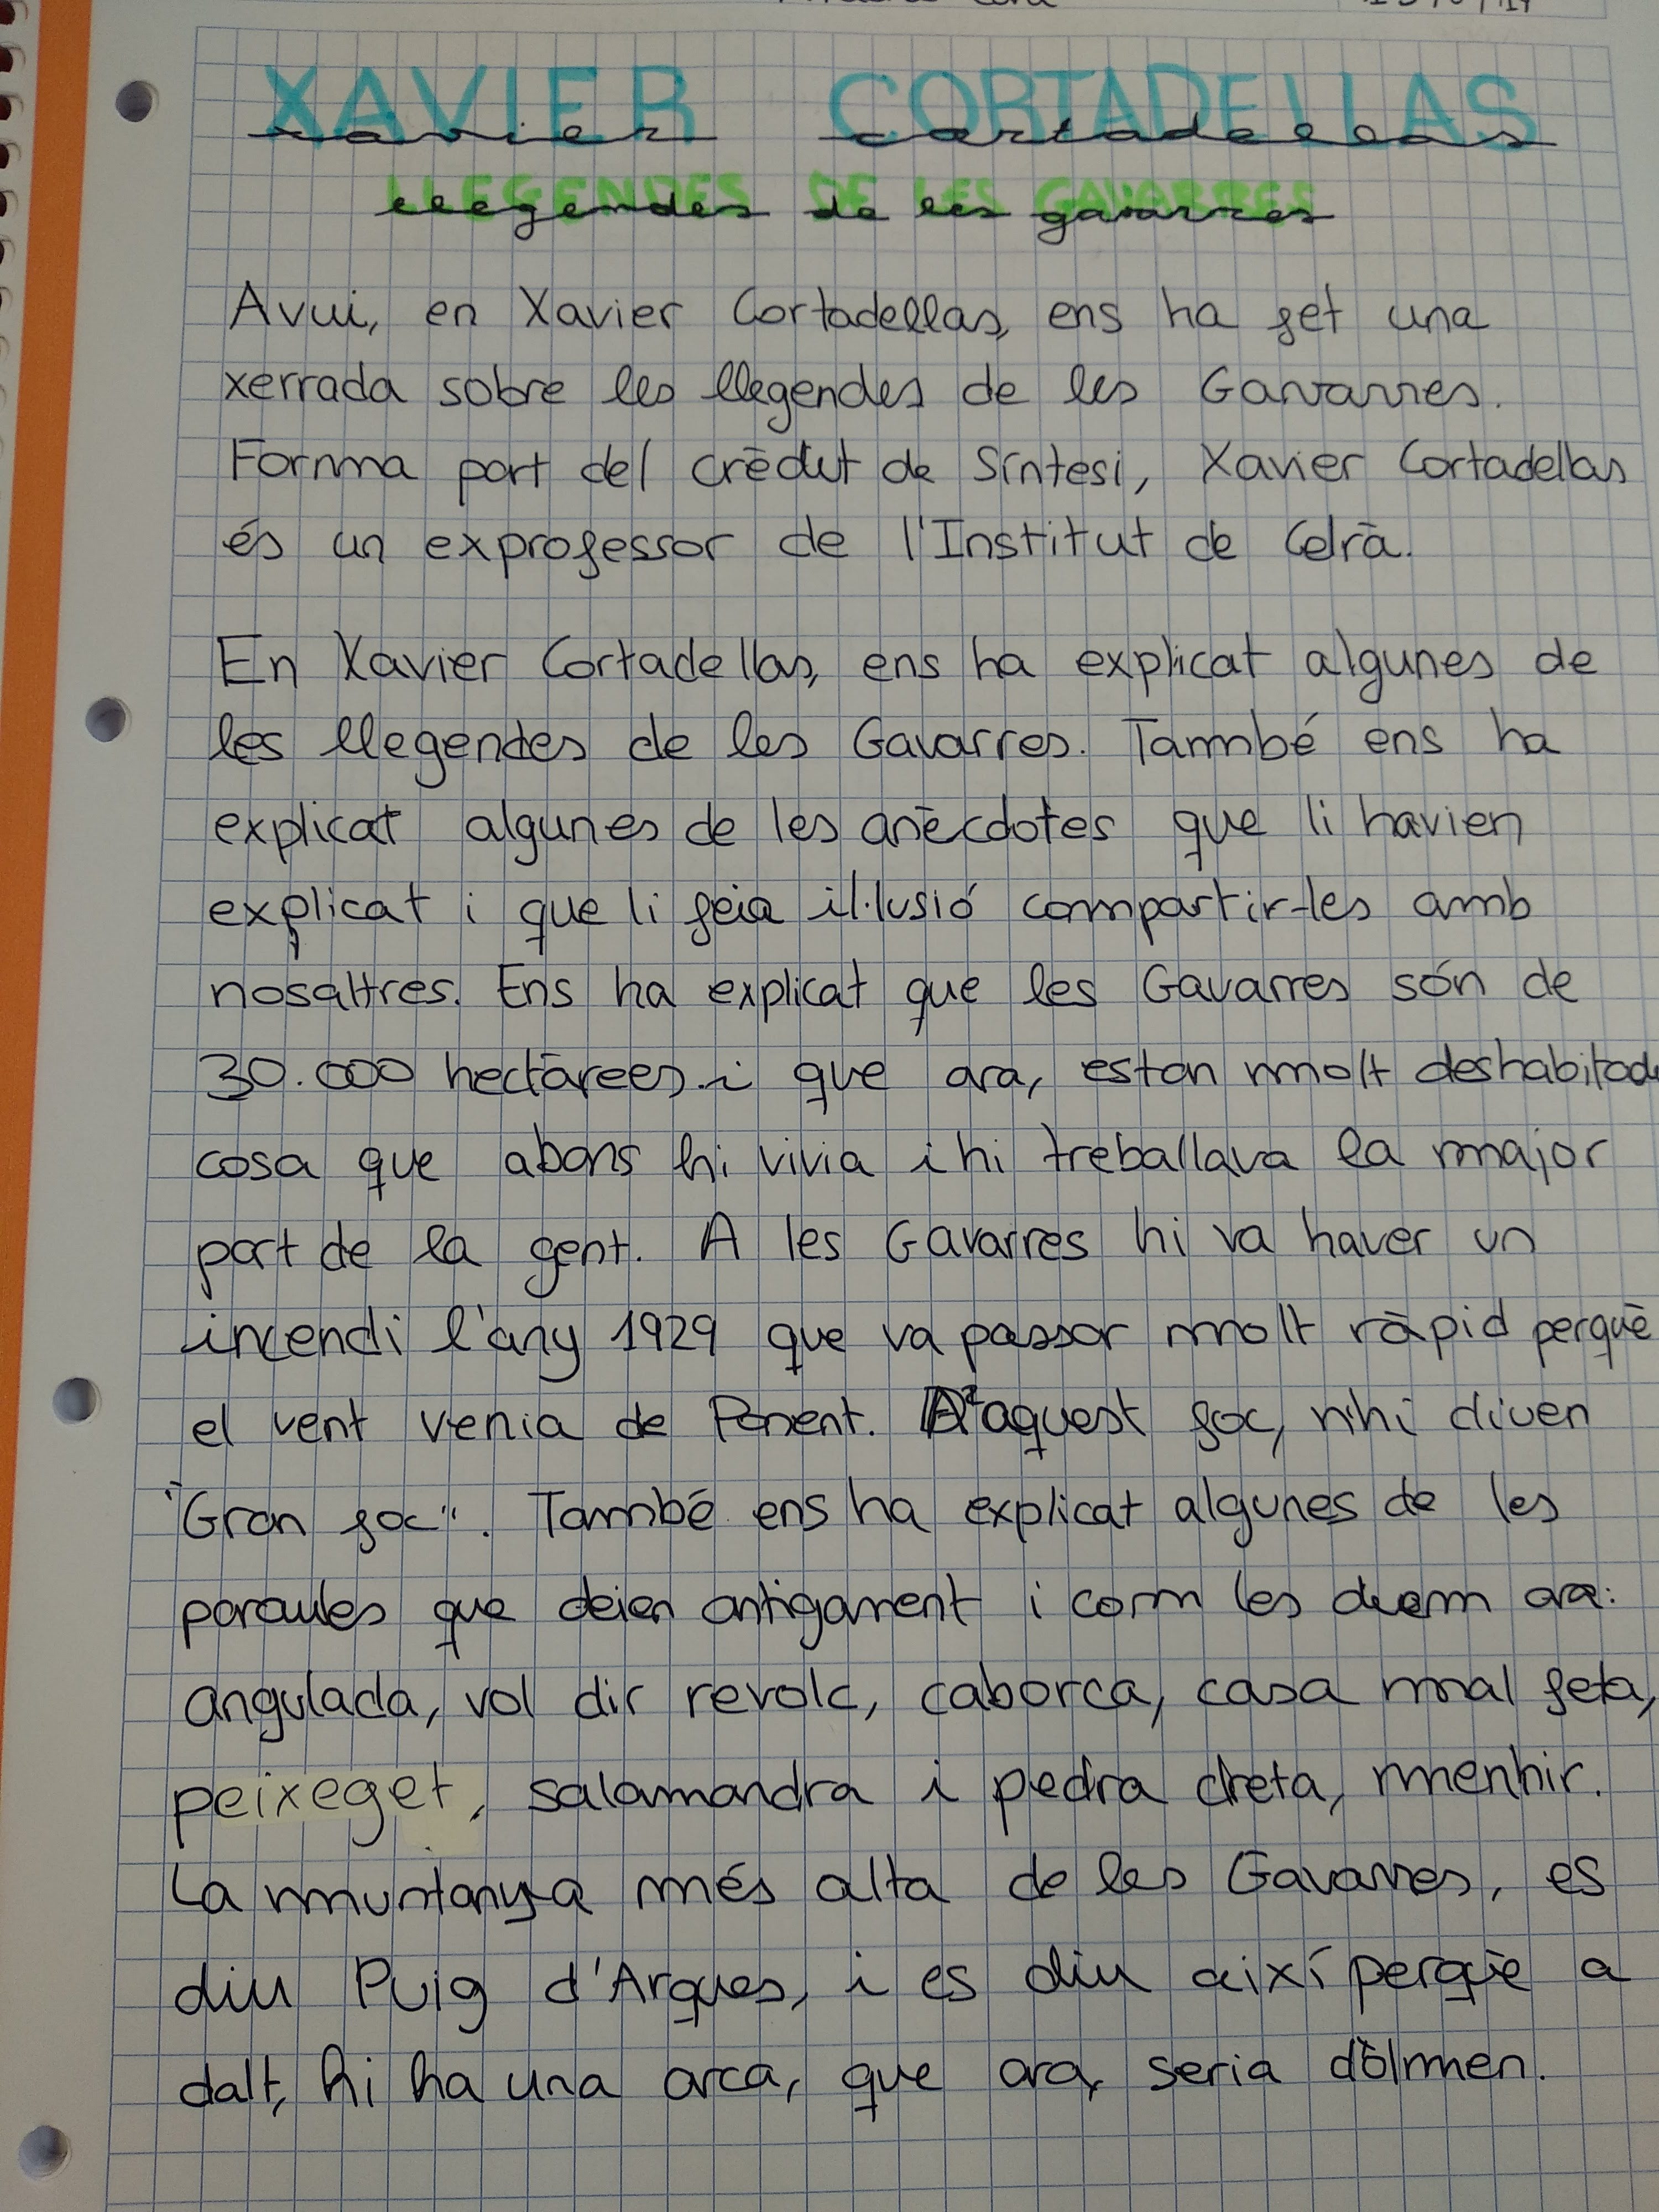 XAVIER CORTADELLAS
xavier cortadellas
LLEGENDES DE LES GAVARRES
llegendes de les gavarres
Avui, en Xavier Cortadellas, ens ha fet una
xerrada sobre les llegendes de les Gavarres.
Forma part del crèdit de Síntesi, Xavier Cortadellas
és un exprofessor de l'Institut de Celrà.
En Xavier Cortadellas, ens ha explicat algunes de
les llegendes de les Gavarres. També ens ha
explicat algunes de les anècdotes que li havien
explicat i que li feia il·lusió compartir-les amb
nosaltres. Ens ha explicat que les Gavarres són de
30.000 hectàrees i que ara, estan molt
cosa que abans hi vivia i hi treballava la major
part de la gent. A les Gavarres hi va haver un
incendi l'any 1929 que va passar molt ràpid perquè
el vent venia de Ponent. D'aquest foc, n'hi diuen
"Gran foc". També ens ha explicat algunes de les
paraules que deien antigament i com les diem ara:
angulada, vol dir revolc, caborca, casa mal feta,
peixeget, salamandra i pedra dreta, menhir.
La muntanya més alta de les Gavarres, es
diu Puig d'Arques, i es diu així perquè a
dalt, hi ha una arca, que ara, seria dòlmen.